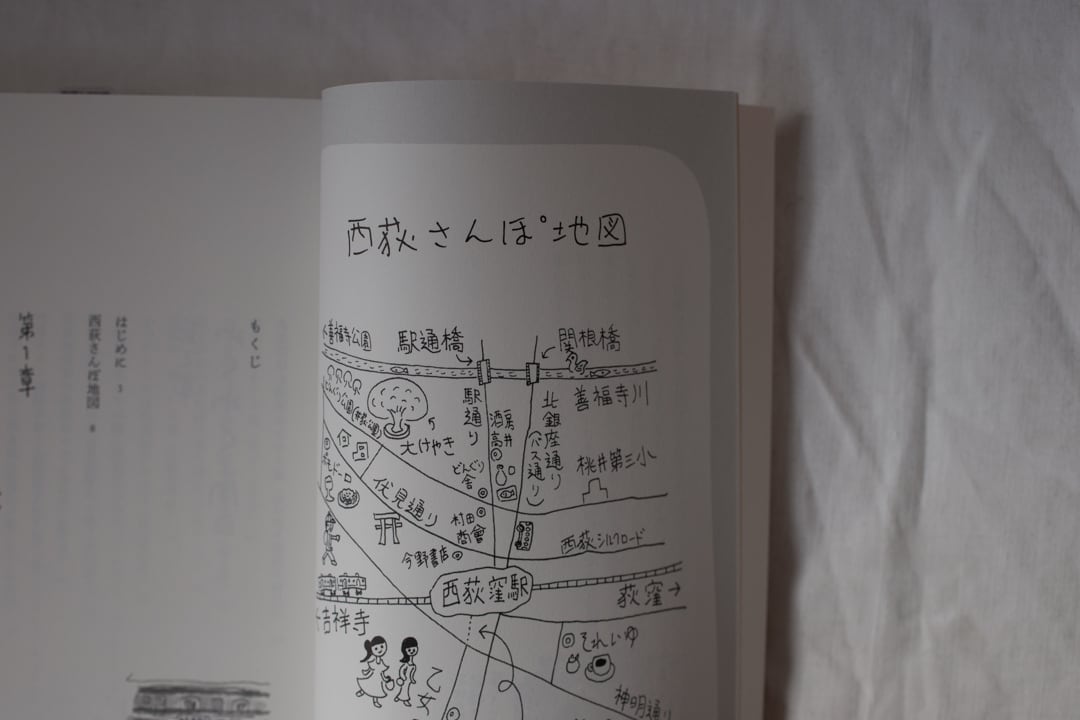 西荻さんぽ地図
善福寺公園
駅通橋
関根橋
善福寺川
駅通り
酒房高井
北銀座通り
(バス通り)
大けやき
どんぐり舎
桃井第三小
伏見通り
村田商會
今野書店
西荻シルクロード
西荻窪駅
荻窪→
吉祥寺
それいゆ
乙女
神明通り
もくじ
はじめに 3
西荻さんぽ地図 8
第1章